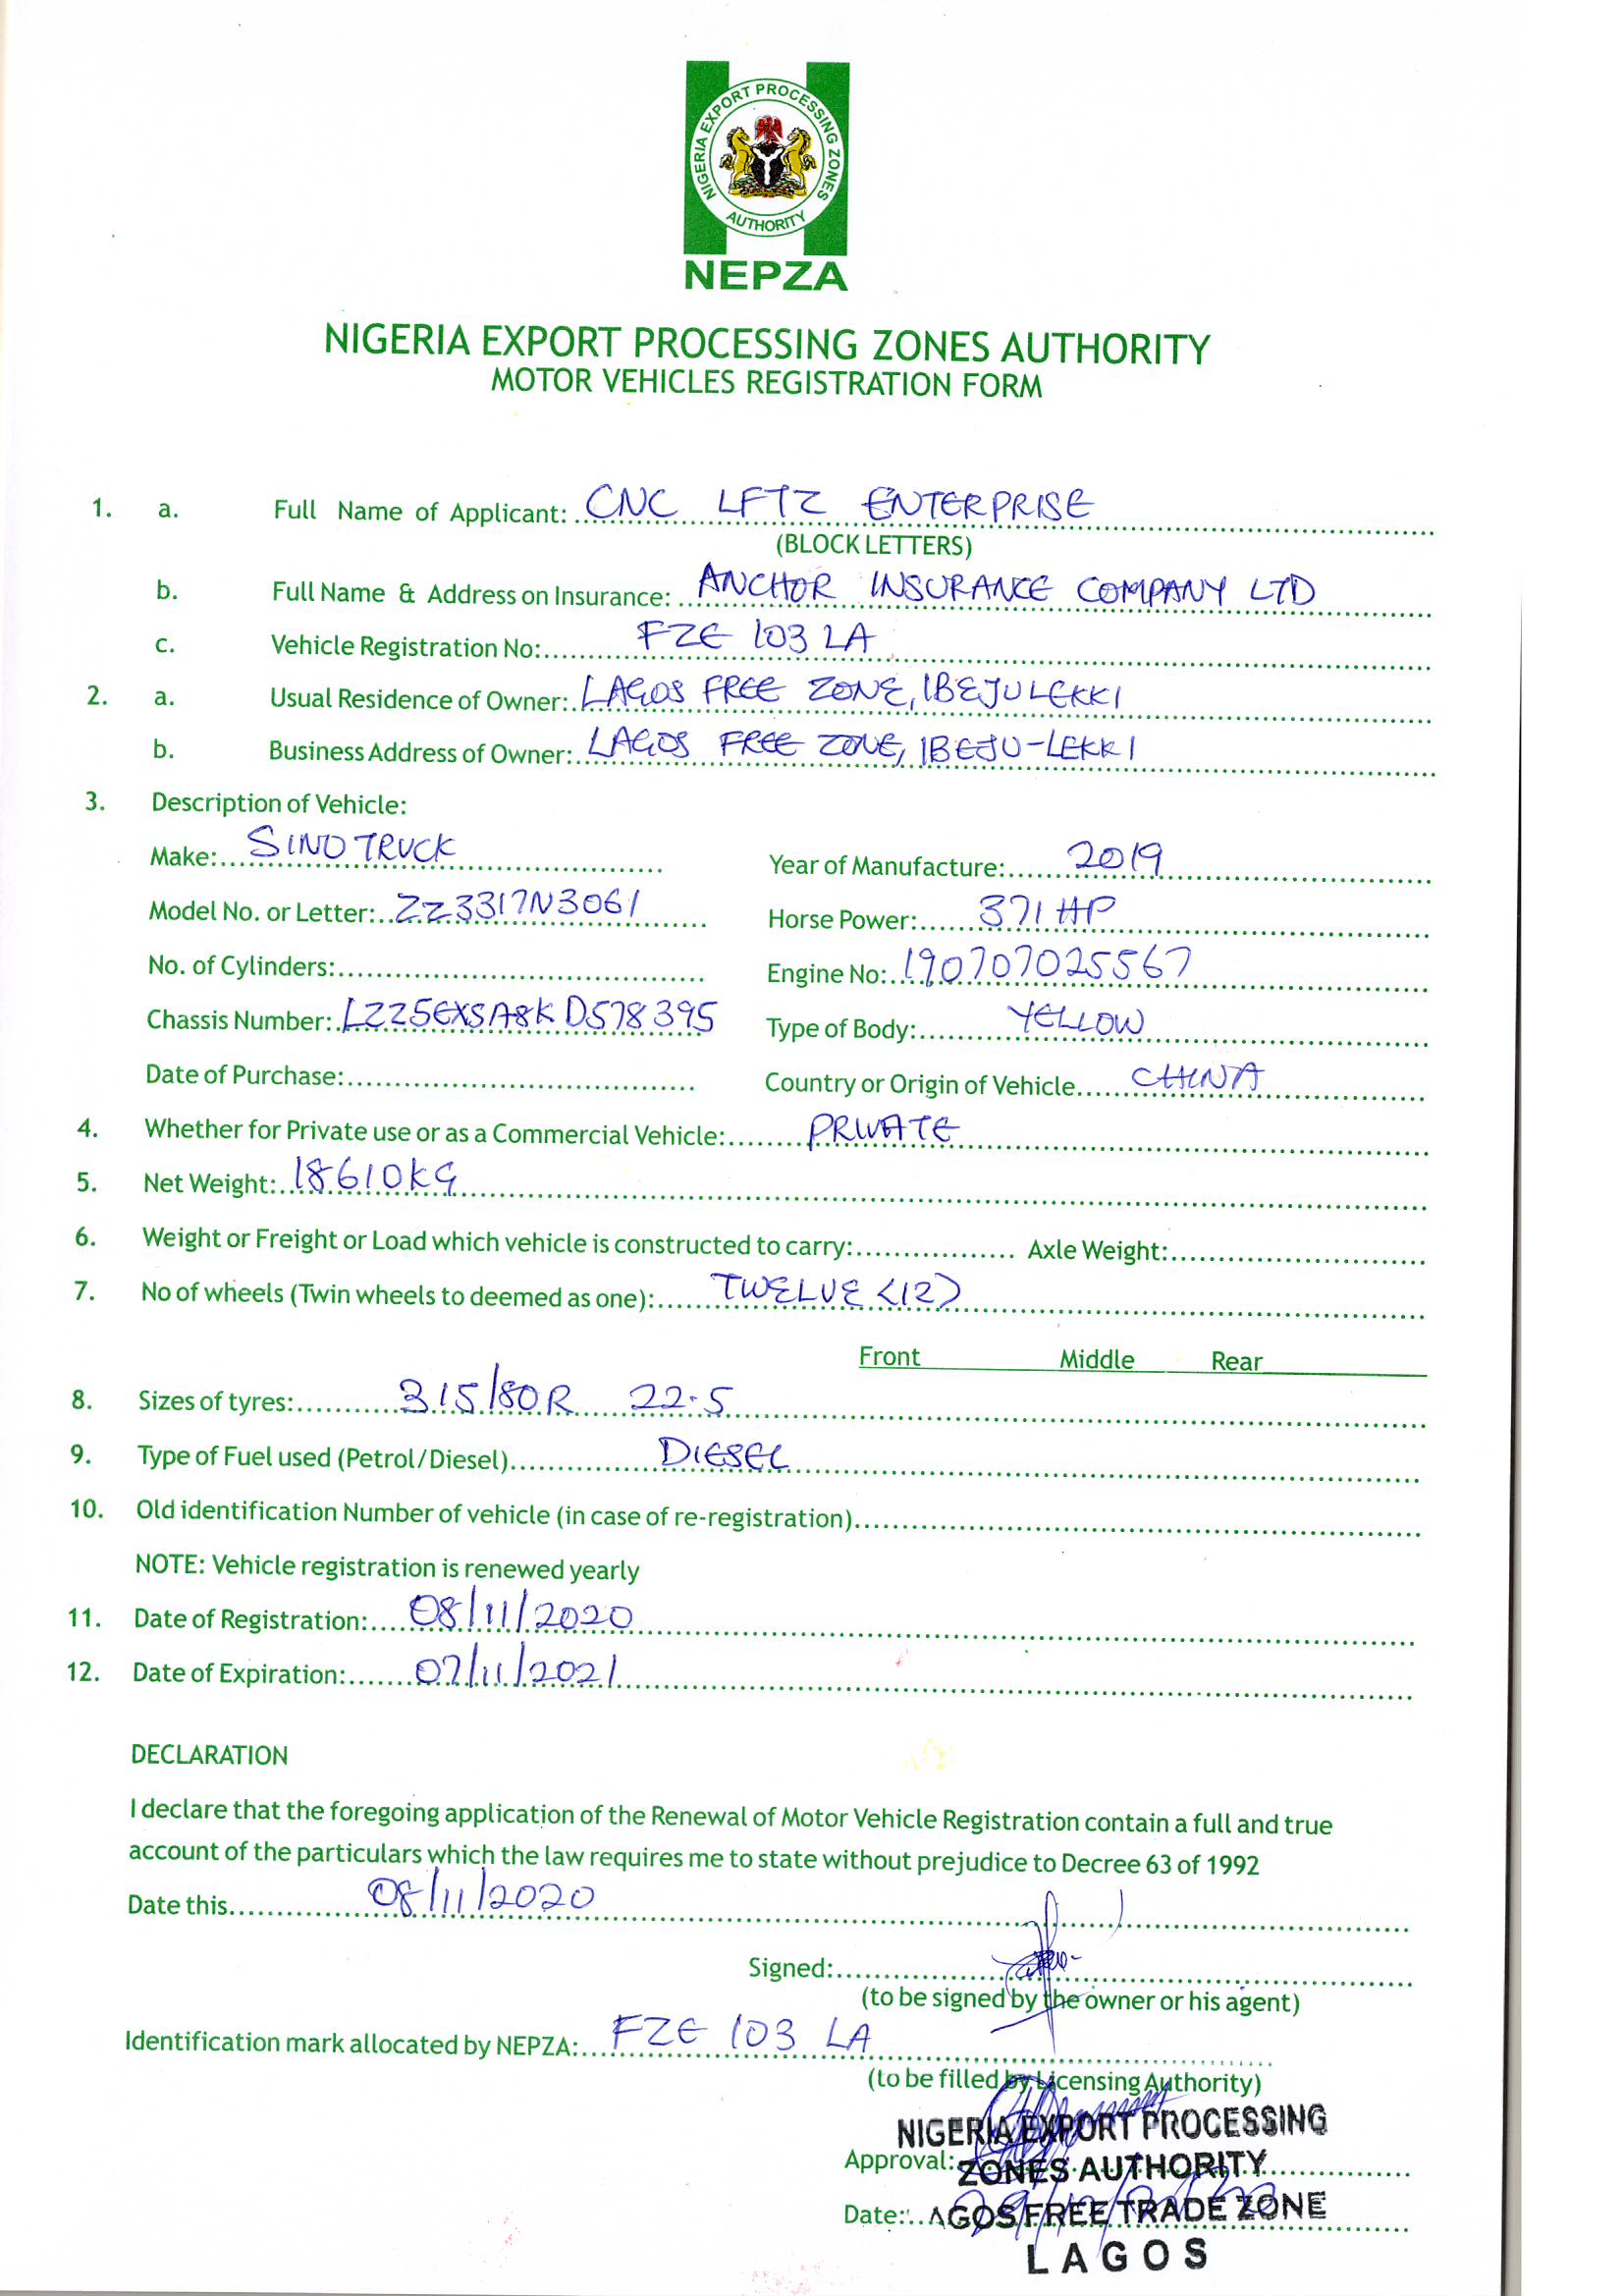 NIGERIA EXPORT PROCESSING ZONES
AUTHORITY
NEPZA
NIGERIA EXPORT PROCESSING ZONES AUTHORITY
MOTOR VEHICLES REGISTRATION FORM
1. a. Full Name of Applicant: CNC LFTZ ENTERPRISE
(BLOCK LETTERS)
b. Full Name & Address on Insurance: ANCHOR INSURANCE COMPANY LTD
c. Vehicle Registration No: FZE 103 LA
2. a. Usual Residence of Owner: LAGOS FREE ZONE, IBEJU LEKKI
b. Business Address of Owner: LAGOS FREE ZONE, IBEJU-LEKKI
3. Description of Vehicle:
Make: SINO TRUCK Year of Manufacture: 2019
Model No. or Letter: ZZ3317N3061 Horse Power: 371 HP
No. of Cylinders: Engine No: 190707025567
Chassis Number: LZZ5EXSA8KD578395 Type of Body: YELLOW
Date of Purchase: Country or Origin of Vehicle CHINA
4. Whether for Private use or as a Commercial Vehicle: PRIVATE
5. Net Weight: 18610KG
6. Weight or Freight or Load which vehicle is constructed to carry: Axle Weight:
7. No of wheels (Twin wheels to deemed as one): TWELVE (12)
Front Middle Rear
8. Sizes of tyres: 315/80R 22.5
9. Type of Fuel used (Petrol/Diesel) DIESEL
10. Old identification Number of vehicle (in case of re-registration)
NOTE: Vehicle registration is renewed yearly
11. Date of Registration: 08/11/2020
12. Date of Expiration: 07/11/2021
DECLARATION
I declare that the foregoing application of the Renewal of Motor Vehicle Registration contain a full and true
account of the particulars which the law requires me to state without prejudice to Decree 63 of 1992
Date this 08/11/2020
Signed:
(to be signed by the owner or his agent)
Identification mark allocated by NEPZA: FZE 103 LA
(to be filled by Licensing Authority)
NIGERIA EXPORT PROCESSING
Approval: ZONES AUTHORITY
Date: AGOS FREE TRADE ZONE
LAGOS